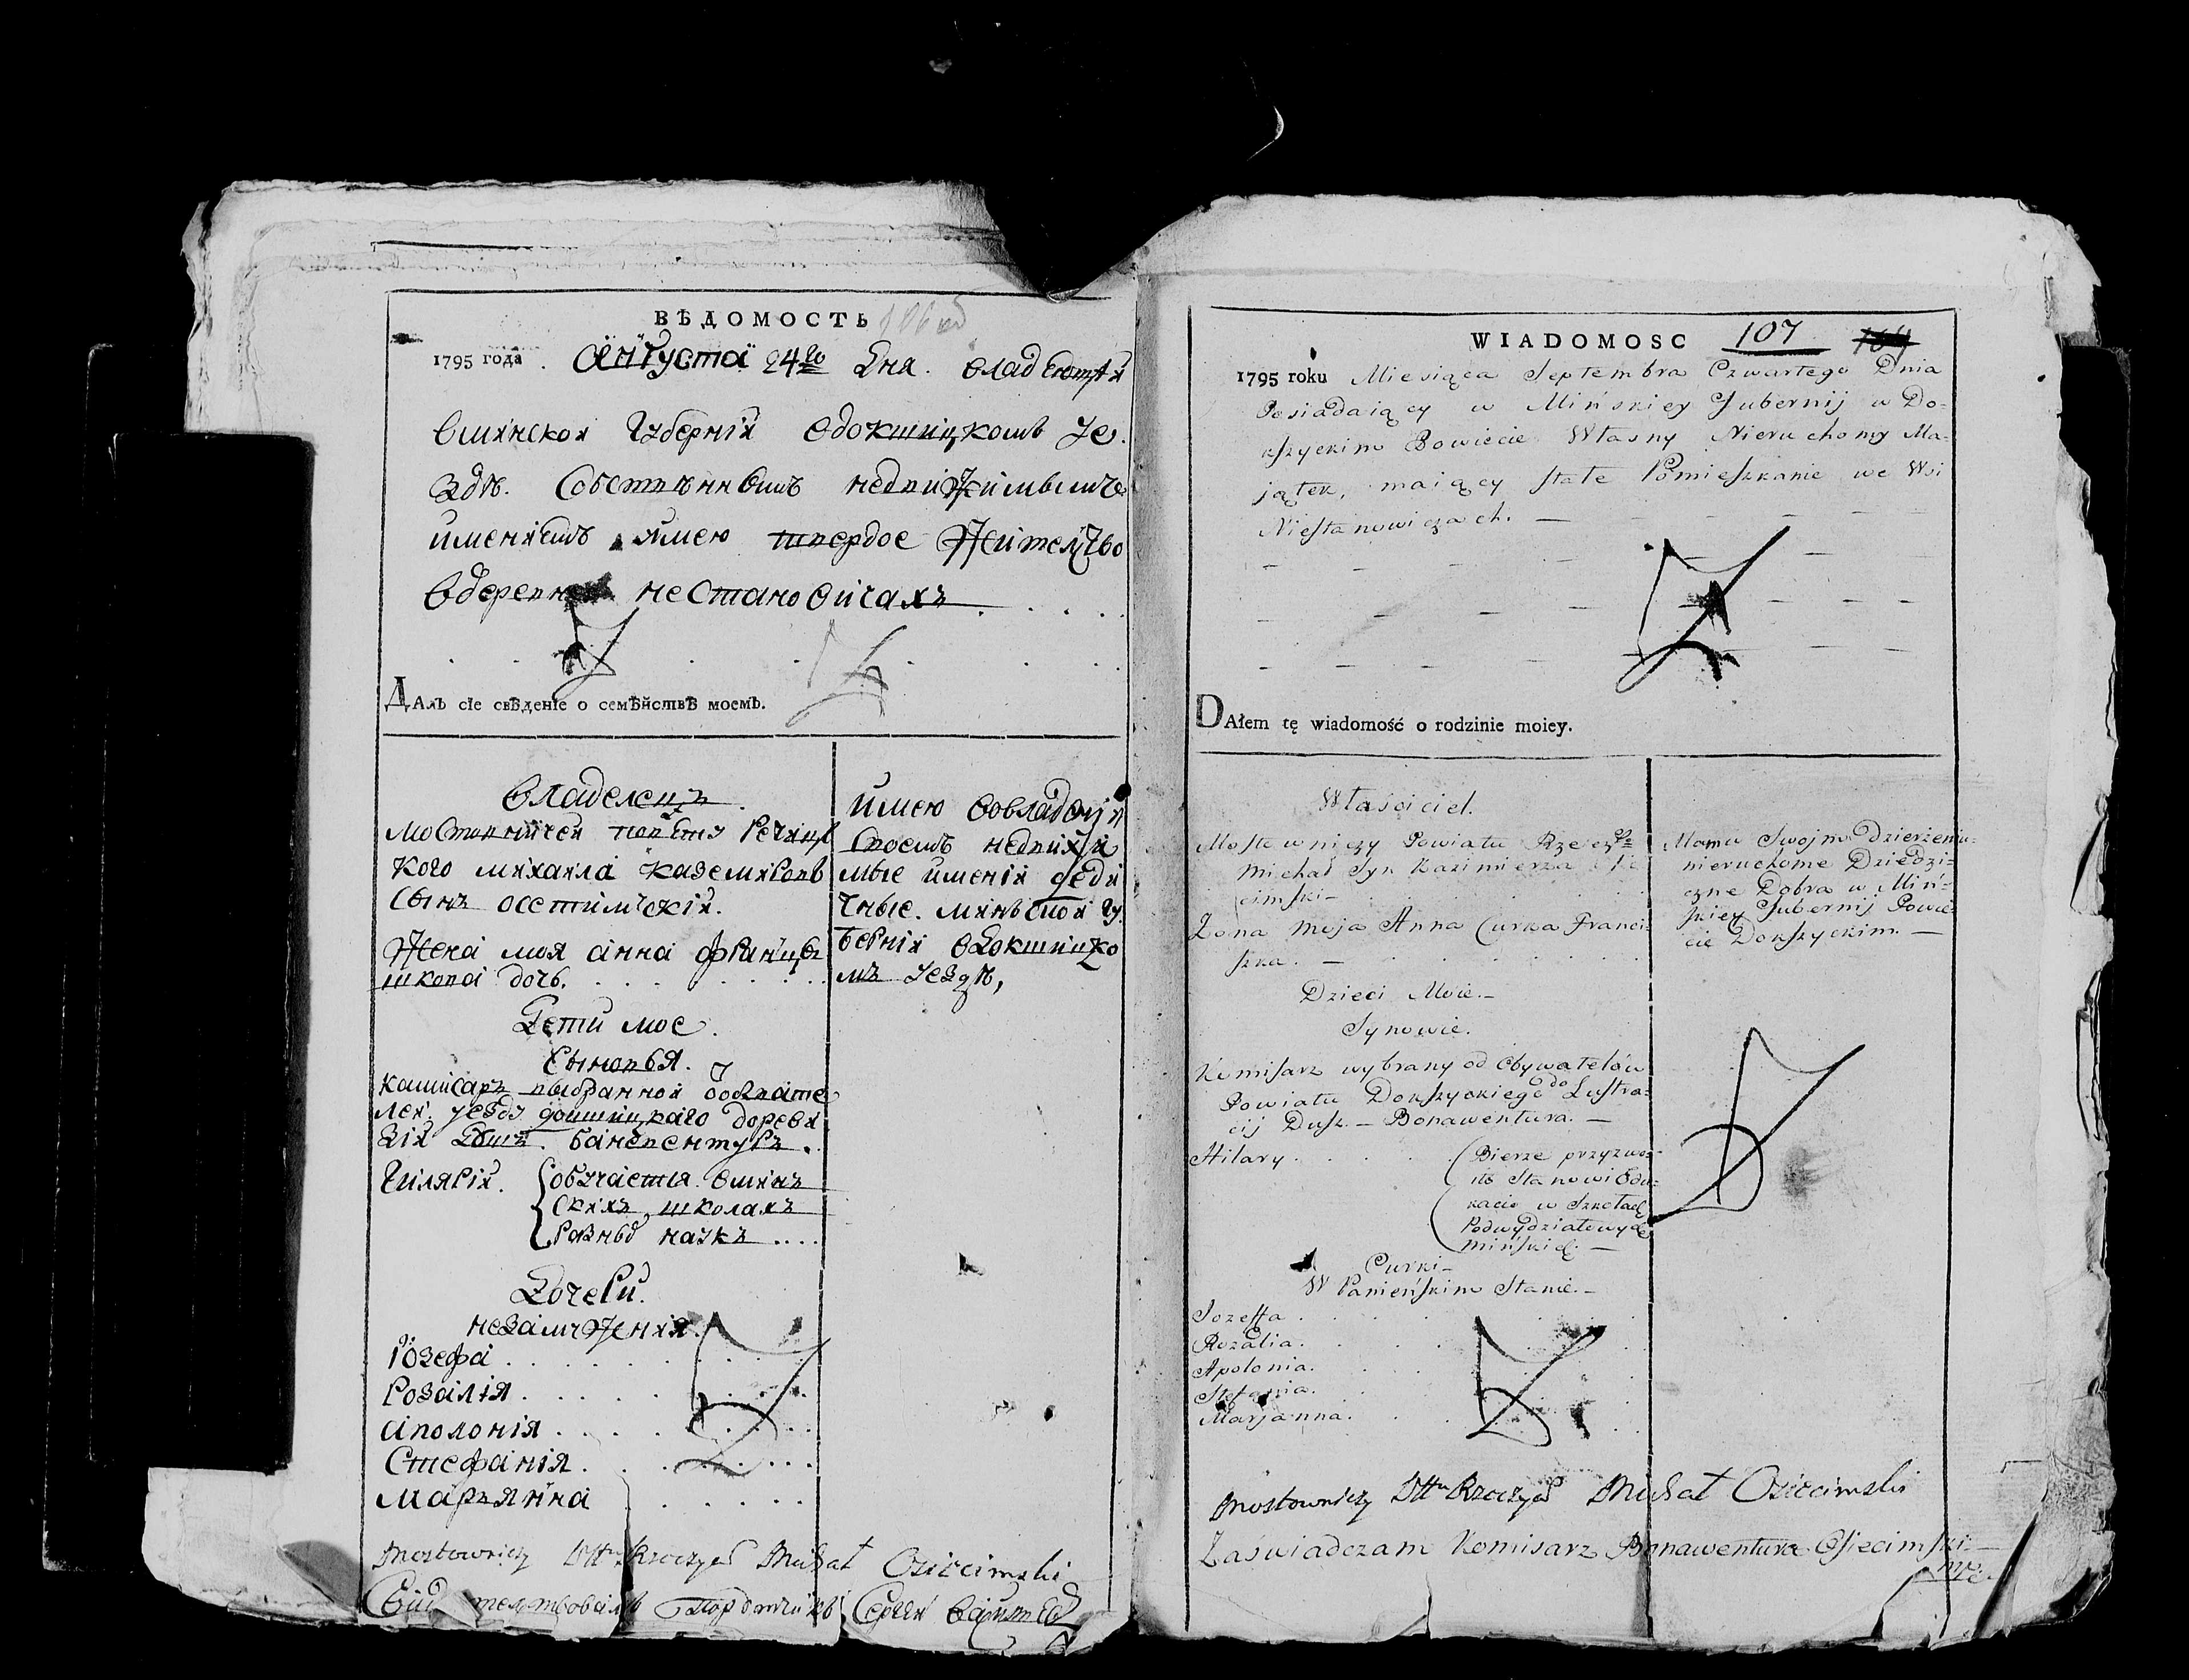 ВѢДОМОСТЬ
1795 года Августа 24го дня. владеющій
вминской губерніи вдокшицкомъ уе.
здѣ. собственнымъ недвижимымъ
имениемъ имею твердое жительство
вдеревне нестановичахъ
Далъ сіе свѣденіе о семѣйствѣ моемъ.
владелецъ.
мостовничей повету речицс
кого михаила каземировъ
сынъ осетимскій.
жена моя анна францы
шкова дочь.
дети мое.
сыновья.
комисаръ выбранной
лей. уезду докшицкаго дореви
зіи душъ. банавентуръ.
гилярій. обучается вминъ
скихъ школахъ
разныхъ наукъ
дочери.
незамужнія.
Іозефа
розалія
аполонія
стефанія
марьянна
имею вовладеніи
своемъ недвижи
мые именіи деди
чные. минской гу
берніи вдокшицко
мъ уездѣ,
Mostowniczy Pttu Rzeczyc Michał Osiecimski
Сергей
WIADOMOSC 107
1795 roku Miesiąca Septembra Czwartego Dnia
Posiadaiący w Mińskiey Gubernij w Do-
kszyckim Powiecie Własny Nieruchomy Ma-
jątek, maiący stałe Pomieszkanie we Wsi
Niestanowiczach. —
DAłem tę wiadomość o rodzinie moiey.
Właściciel.
Mostowniczy Powiatu Rzeczgo
Michał Syn Kazimierza Osie
cimski —
Żona moja Anna Curka Franci-
szka. —
Dzieci Moie. —
Synowie.
Komisarz wybrany od Obywatelów
Powiatu Dokszyckiego do Lustra-
cij Dusz. — Bonawentura. —
Hilary. Bierze przyzwo-
ito Stanowi Edu-
kacie w Szkołach
Podwydziałowych
Mińskich. —
Curki —
W Panieńskim Stanie. —
Jozeffa
Rozalia.
Apolonia.
Stefania.
Marjanna.
Mamu Swojm Dzierżeniu
nieruchome Dziedzi-
czne Dobra w Miń-
skiey Gubernij Powie-
cie Dokszyckim. —
Mostowniczy Pttu Rzeczyc Michał Osiecimski
Zaświadczam Komisarz Bonawentura Osiecimski —